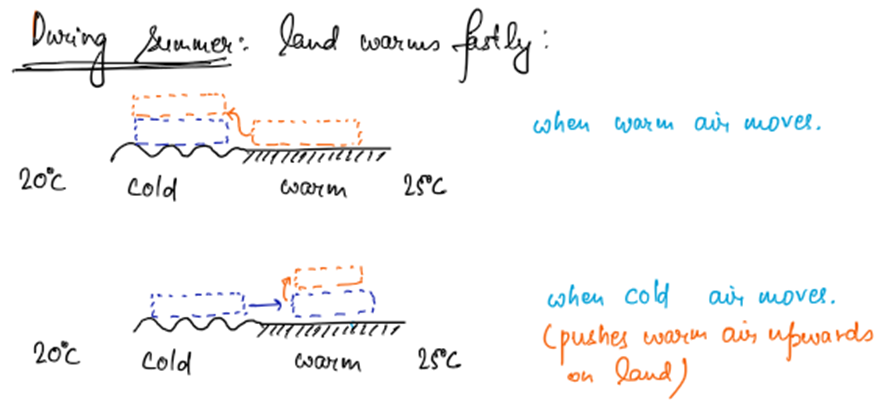 During Summer: land warms fastly:
when warm air moves.
20°C cold warm 25°C
when cold air moves.
(pushes warm air upwards
on land)
20°C cold warm 25°C